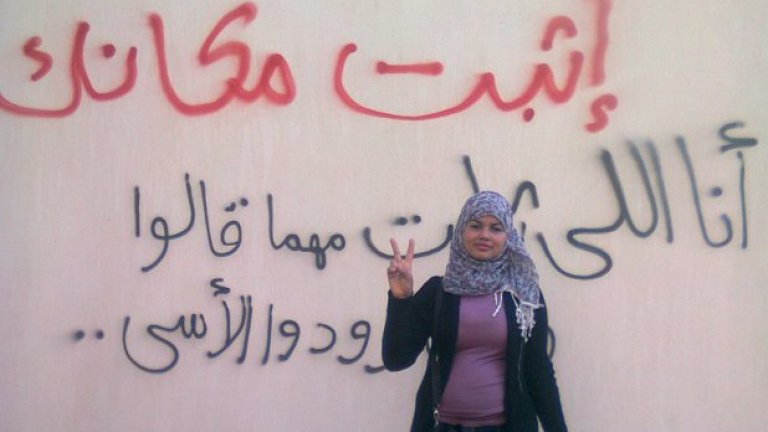 إثبت مكانك
أنا اللى مهما قالوا
الأسى ..